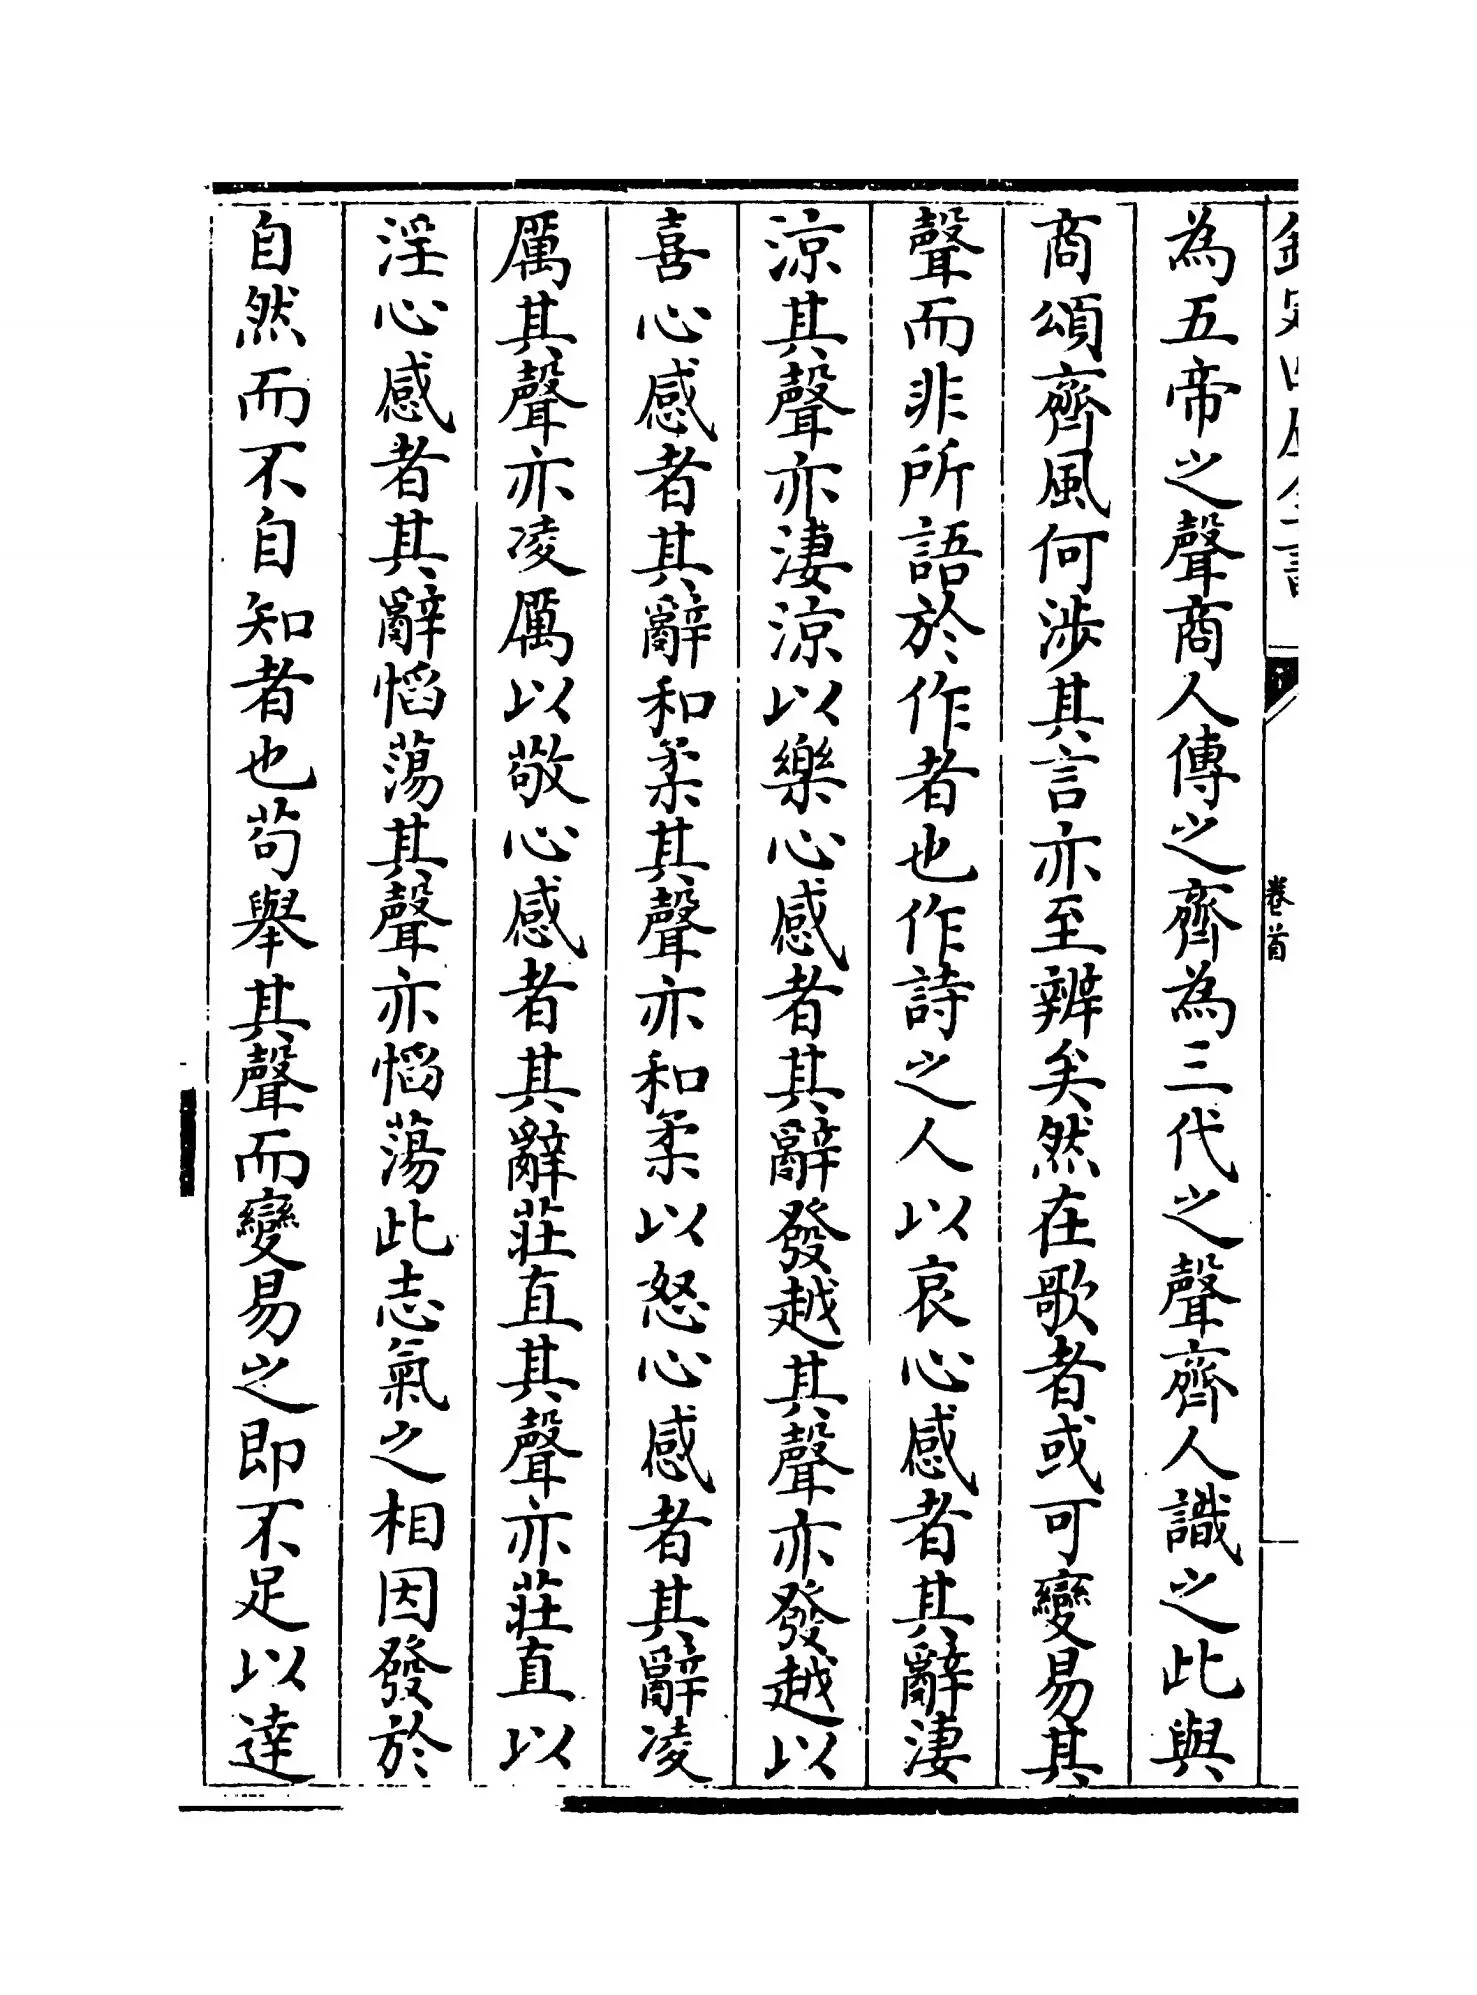 卷首
為五帝之聲商人傳之齊為三代之聲齊人識之此與
商頌齊風何涉其言亦至辨矣然在歌者或可變易其
聲而非所語於作者也作詩之人以哀心感者其辭淒
涼其聲亦淒涼以樂心感者其辭發越其聲亦發越以
喜心感者其辭和柔其聲亦和柔以怒心感者其辭凌
厲其聲亦凌厲以敬心感者其辭莊直其聲亦莊直以
淫心感者其辭慆蕩其聲亦慆蕩此志氣之相因發於
自然而不自知者也苟舉其聲而變易之即不足以達